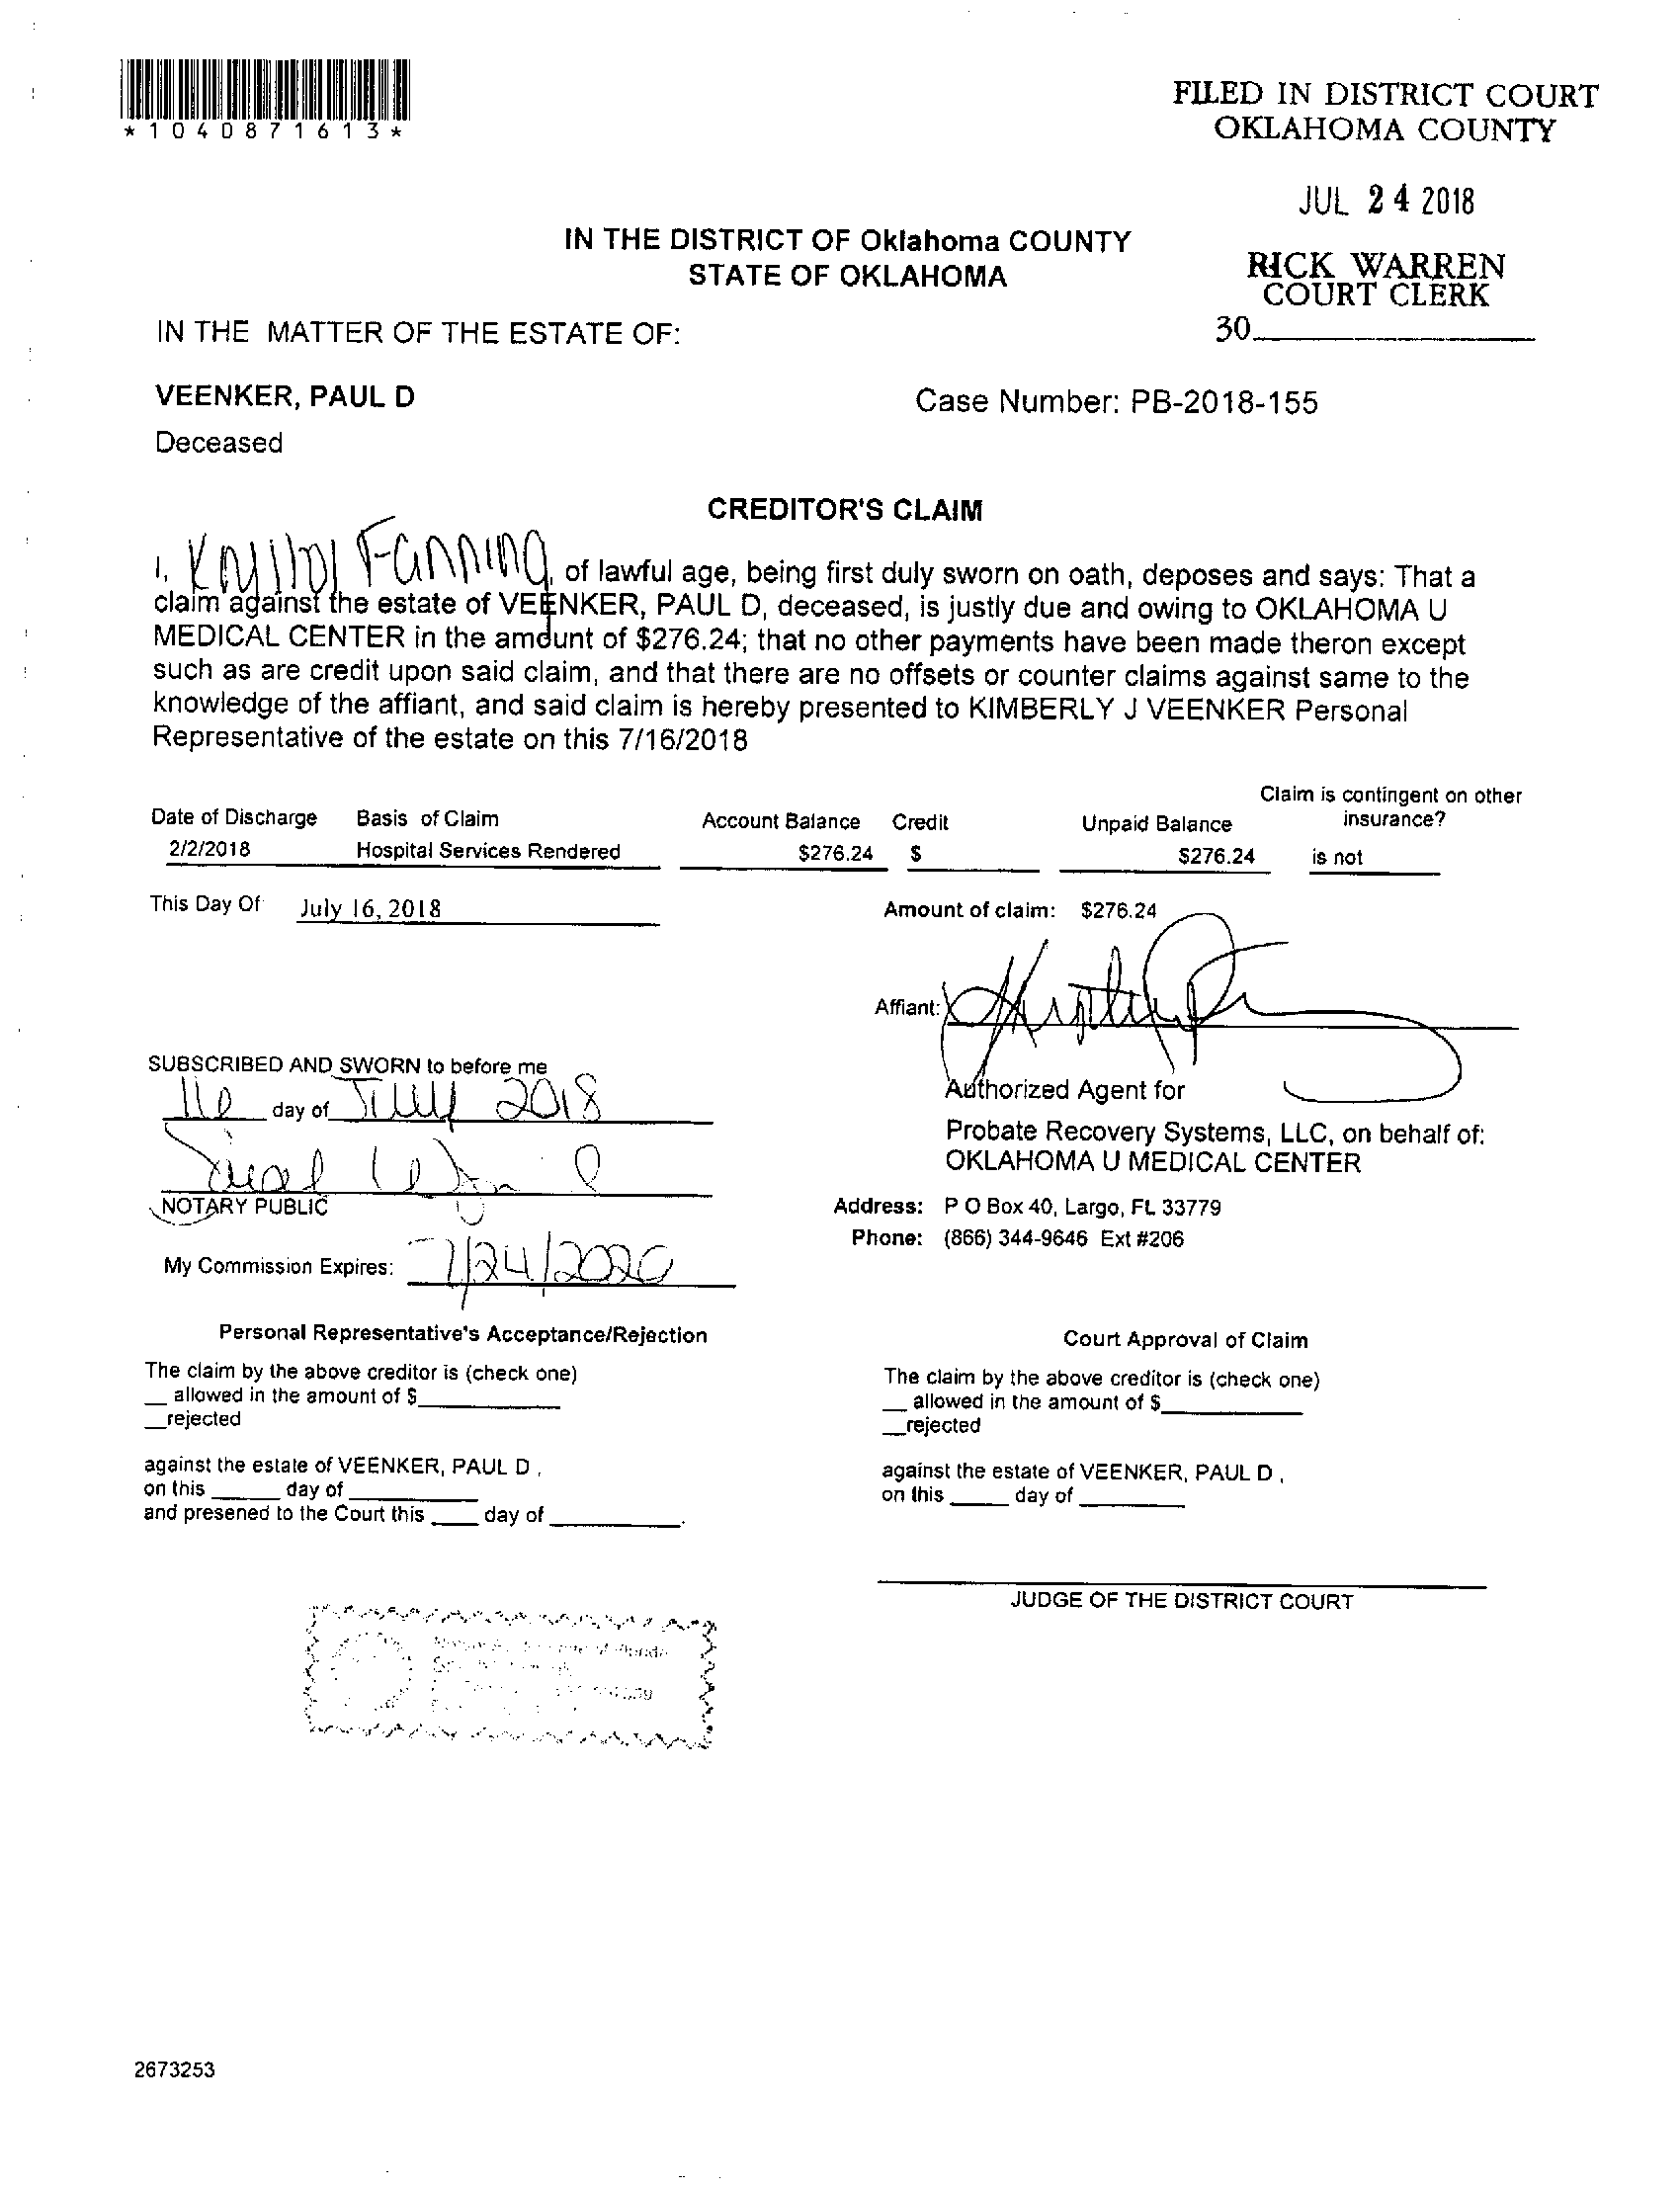 *1040871613*
FILED IN DISTRICT COURT
OKLAHOMA COUNTY
JUL 24 2018
RICK WARREN
COURT CLERK
30
IN THE DISTRICT OF Oklahoma COUNTY
STATE OF OKLAHOMA
IN THE MATTER OF THE ESTATE OF:
VEENKER, PAUL D
Case Number: PB-2018-155
Deceased
CREDITOR'S CLAIM
I, Fanning, of lawful age, being first duly sworn on oath, deposes and says: That a
claim against the estate of VEENKER, PAUL D, deceased, is justly due and owing to OKLAHOMA U
MEDICAL CENTER in the amount of $276.24; that no other payments have been made theron except
such as are credit upon said claim, and that there are no offsets or counter claims against same to the
knowledge of the affiant, and said claim is hereby presented to KIMBERLY J VEENKER Personal
Representative of the estate on this 7/16/2018
Claim is contingent on other
Date of Discharge Basis of Claim Account Balance Credit Unpaid Balance insurance?
2/2/2018 Hospital Services Rendered $276.24 $ $276.24 is not
This Day Of July 16, 2018
Amount of claim: $276.24
Affiant:
SUBSCRIBED AND SWORN to before me
16 day of July 2018
NOTARY PUBLIC
My Commission Expires: 7/24/2020
Authorized Agent for
Probate Recovery Systems, LLC, on behalf of:
OKLAHOMA U MEDICAL CENTER
Address: P O Box 40, Largo, FL 33779
Phone: (866) 344-9646 Ext #206
Personal Representative's Acceptance/Rejection
The claim by the above creditor is (check one)
__ allowed in the amount of $
__rejected
against the estate of VEENKER, PAUL D ,
on this ____ day of ____
and presened to the Court this ____ day of ____.
Court Approval of Claim
The claim by the above creditor is (check one)
__ allowed in the amount of $
__rejected
against the estate of VEENKER, PAUL D ,
on this ____ day of ____
JUDGE OF THE DISTRICT COURT
2673253